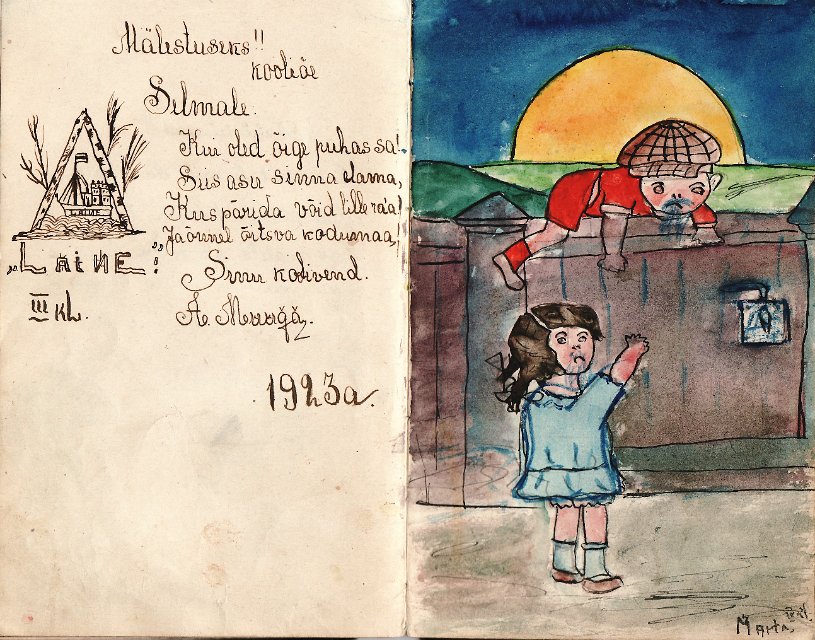 Mälestuseks!!
kooliõe
Selmale.
Kui oled õige puhas sa!
Siis asu sinna elama,
Kus pärida võid lille raa!
Ja õunel õitsva kodumaa,
Sinu kolivend.
LAINE
"LAINE"!
III kl.
A.
1923a.
Marta